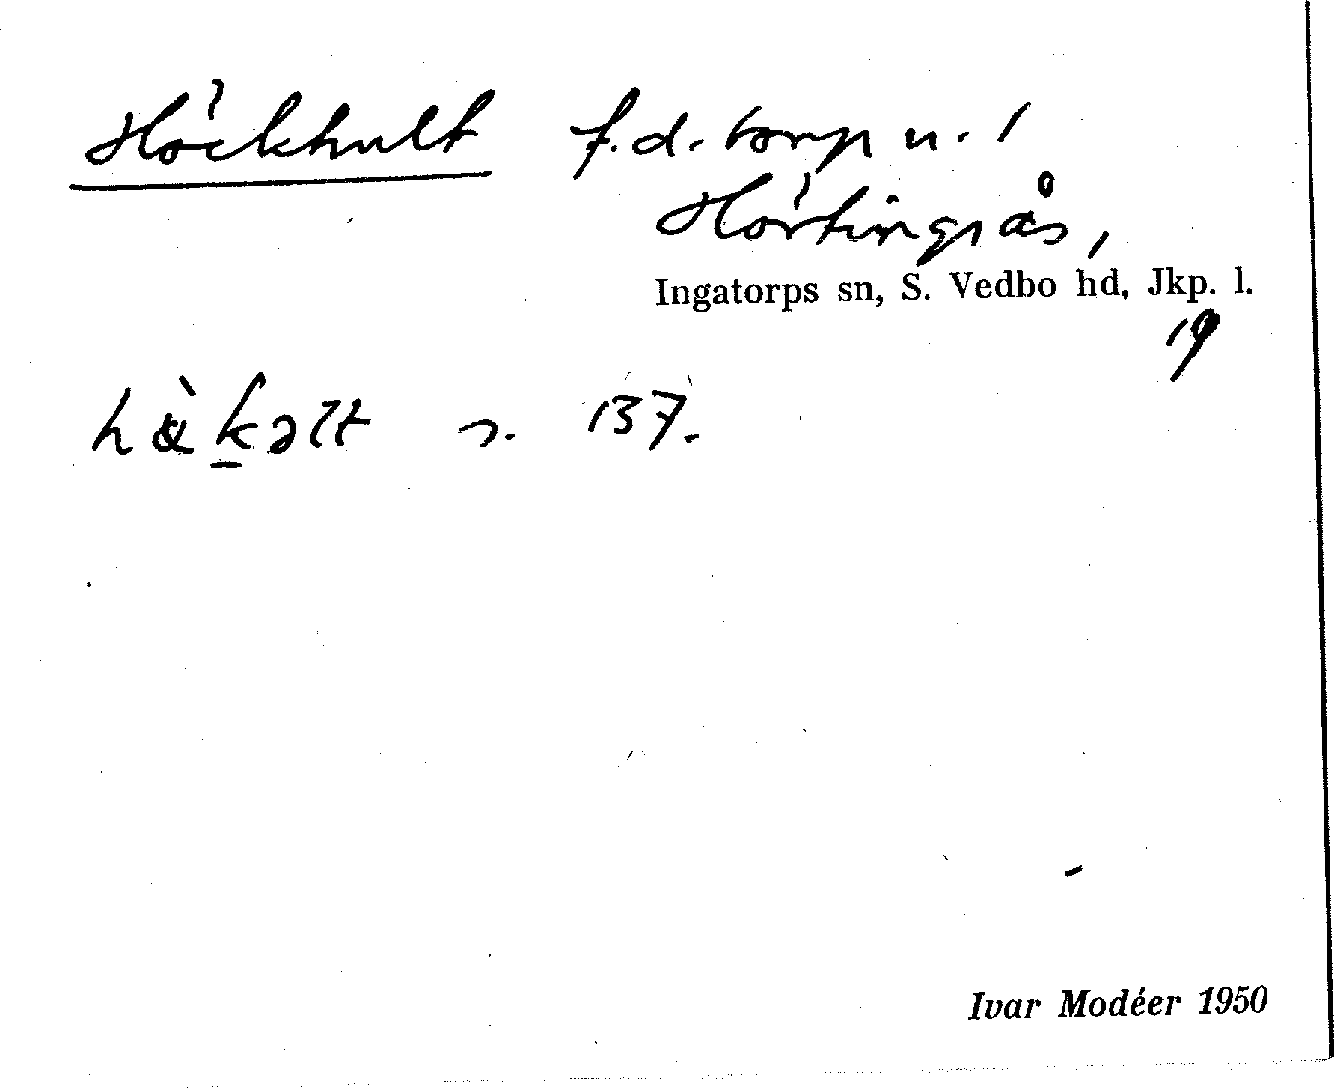 Höckhult f.d. torp u. /
Hörtingsås,
Ingatorps sn, S. Vedbo hd, Jkp. l.
19
s. 137.
Ivar Modéer 1950